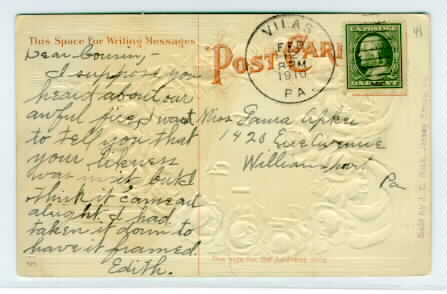 This Space for Writing Messages
POST CARD
VILAS
FEB
8 PM
1910
PA.
U.S. POSTAGE
Dear Cousin,-
I suppose you
heard about our
awful fire, I want
to tell you that
your likeness
was in it but I
think it came out
alright. I had
taken it down to
have it framed.
Edith.
Miss Laura
1420
Williamsport
Pa
This side for the Address only